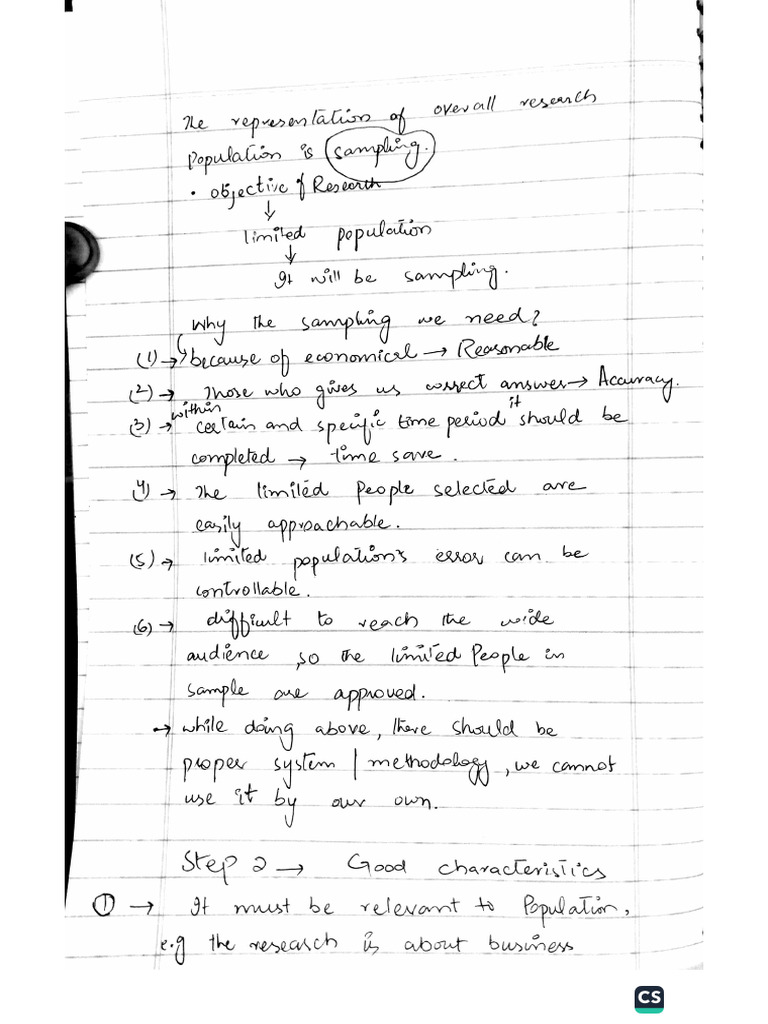 The representation of overall research
Population is sampling.
• objective of Research
↓
limited population
↓
It will be sampling.
Why the sampling we need?
(1) → because of economical → Reasonable
(2) → Those who gives us correct answer → Accuracy.
(3) → within certain and specific time period it should be
completed → time save.
4) → The limited people selected are
easily approachable.
(5) → limited population's error can be
controllable.
(6) → difficult to reach the wide
audience, so the limited People in
sample are approved.
→ while doing above, there should be
proper system / methodology, we cannot
use it by our own.
Step 2 → Good characteristics
① → It must be relevant to Population,
e.g the research is about business
CS